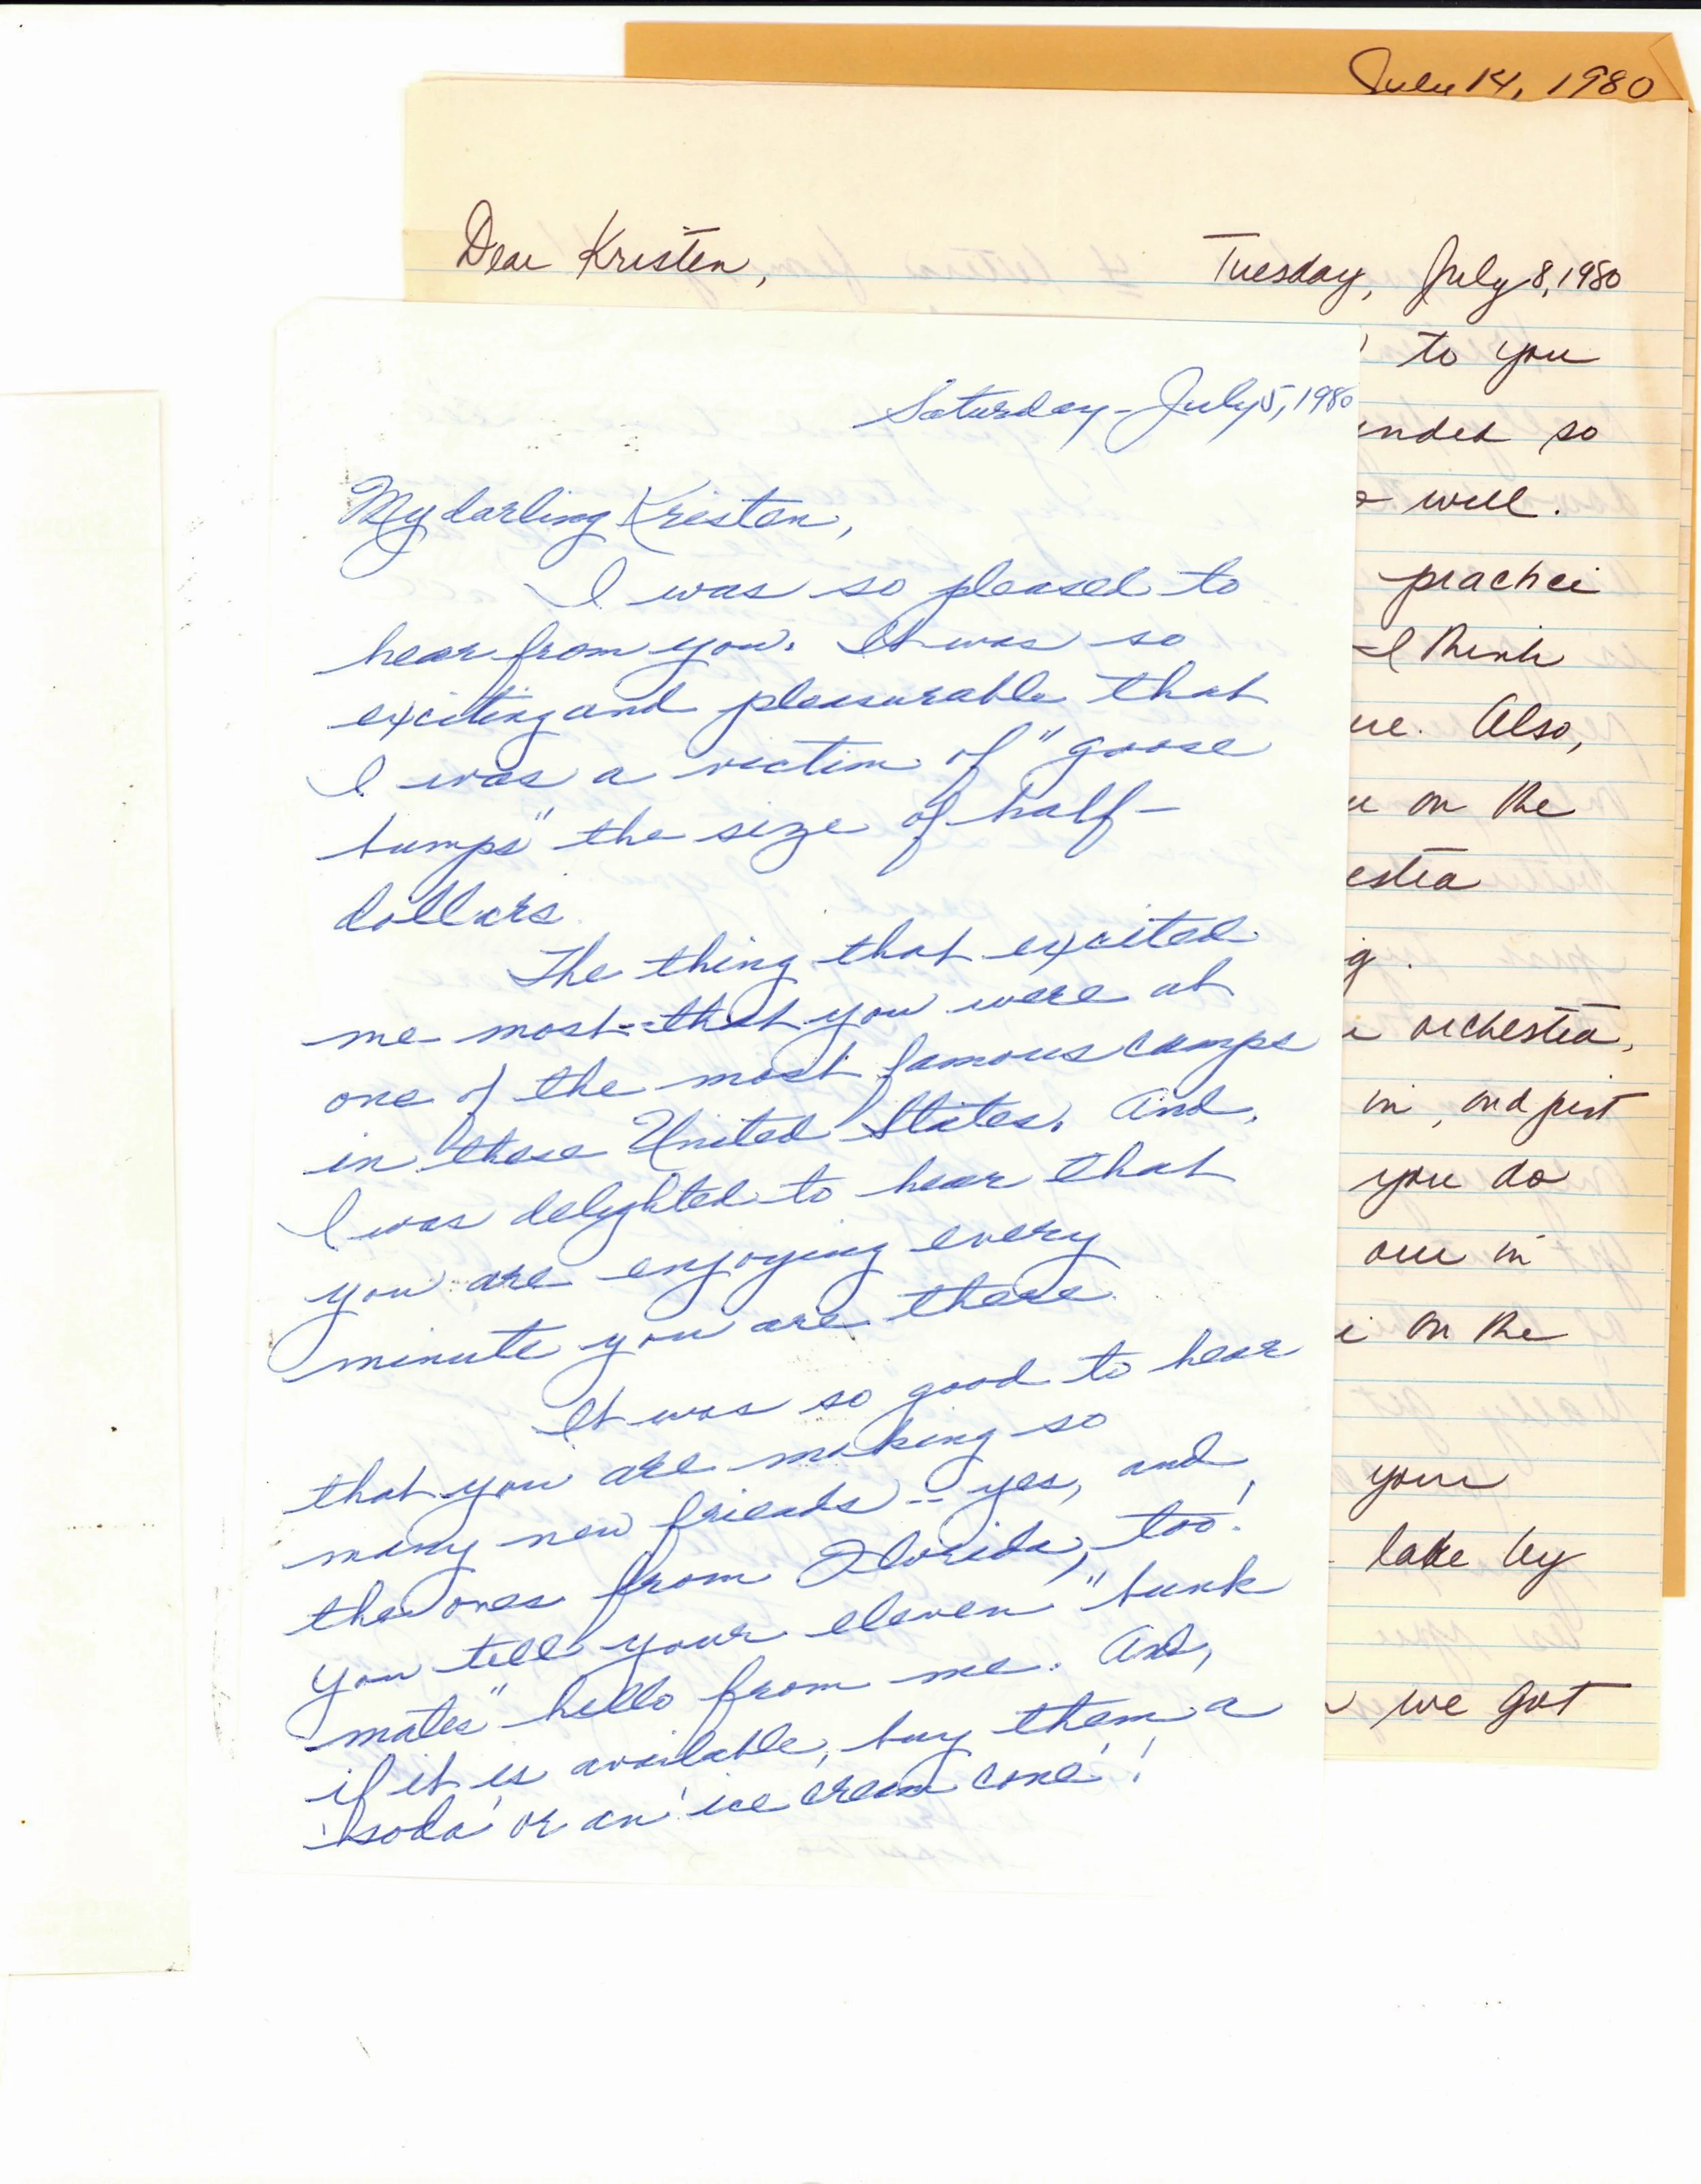 July 14, 1980
Dear Kristen,
Tuesday, July 8, 1980
to you
so
will.
I think
Also,
on the
orchestra,
in, and just
you do
our in
on the
your
lake by
we got
Saturday - July 5, 1980
My darling Kristen,
I was so pleased to
hear from you. It was so
exciting and pleasurable that
I was a victim of "goose
bumps" the size of half-
dollars.
The thing that excited
me most -- that you were at
one of the most famous camps
in these United States. And,
I was delighted to hear that
you are enjoying every
minute you are there.
It was so good to hear
that you are making so
many new friends -- yes, and
the ones from Florida, too!
You tell your eleven "bunk
mates" hello from me. And,
if it is available, buy them a
'soda' or an 'ice cream cone'!